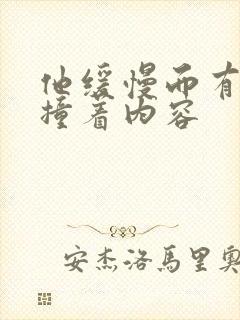 他缓慢而有
撞着内容
安杰洛馬里奥